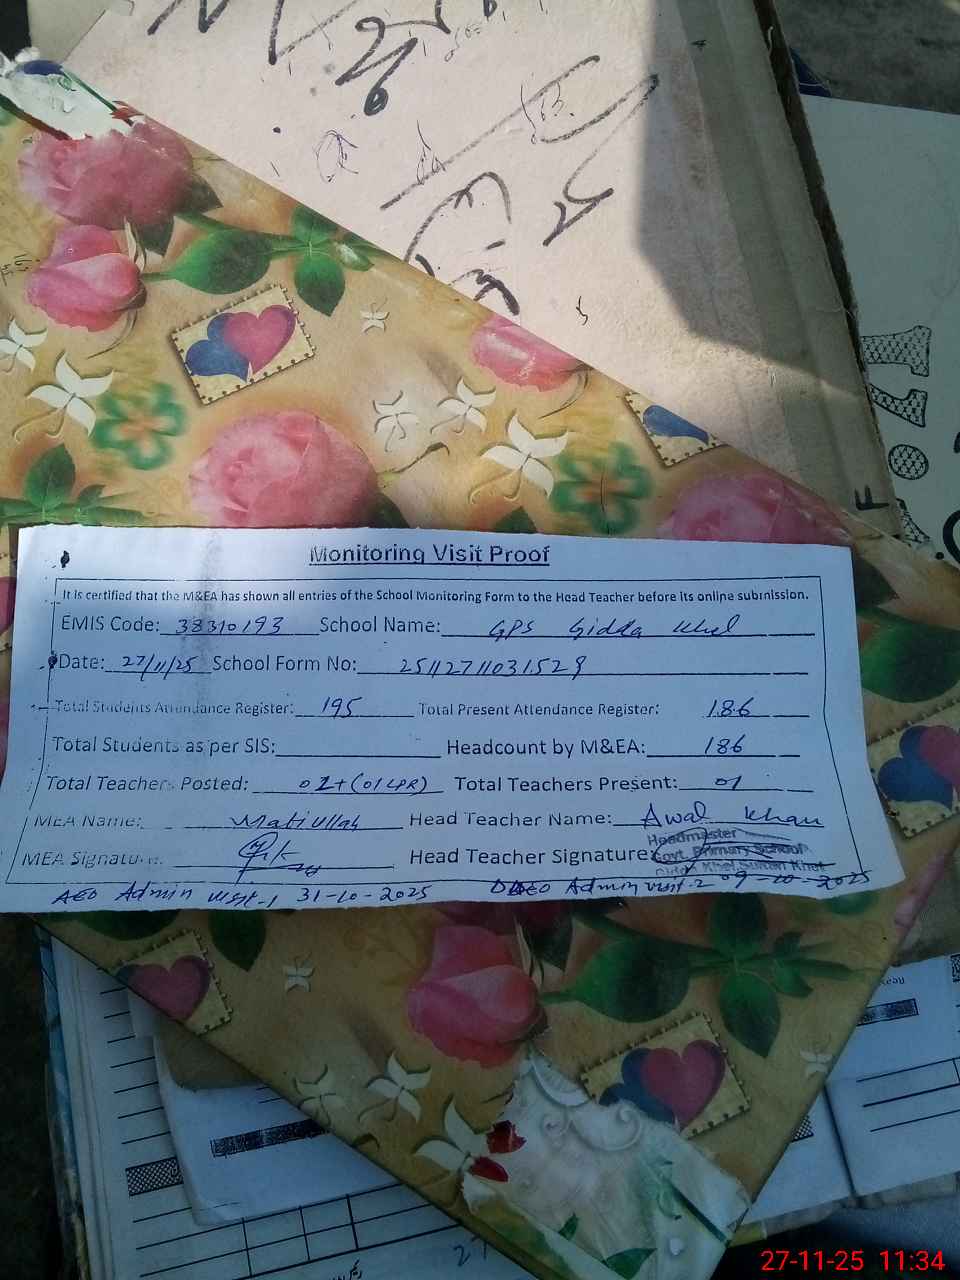 Monitoring Visit Proof
It is certified that the M&EA has shown all entries of the School Monitoring Form to the Head Teacher before its online submission.
EMIS Code: 38310193 School Name: GPS Gidda Khel
Date: 27/11/25 School Form No: 25112711031529
Total Students Attendance Register: 195 Total Present Attendance Register: 186
Total Students as per SIS: Headcount by M&EA: 186
Total Teachers Posted: 02+(01 LPR) Total Teachers Present: 01
MEA Name: Matiullah Head Teacher Name: Awal Khan
MEA Signature: Head Teacher Signature:
Headmaster
Govt. Primary School
AEO Admin visit-1 31-10-2025 Admin visit-2 09-10-2025
27-11-25 11:34